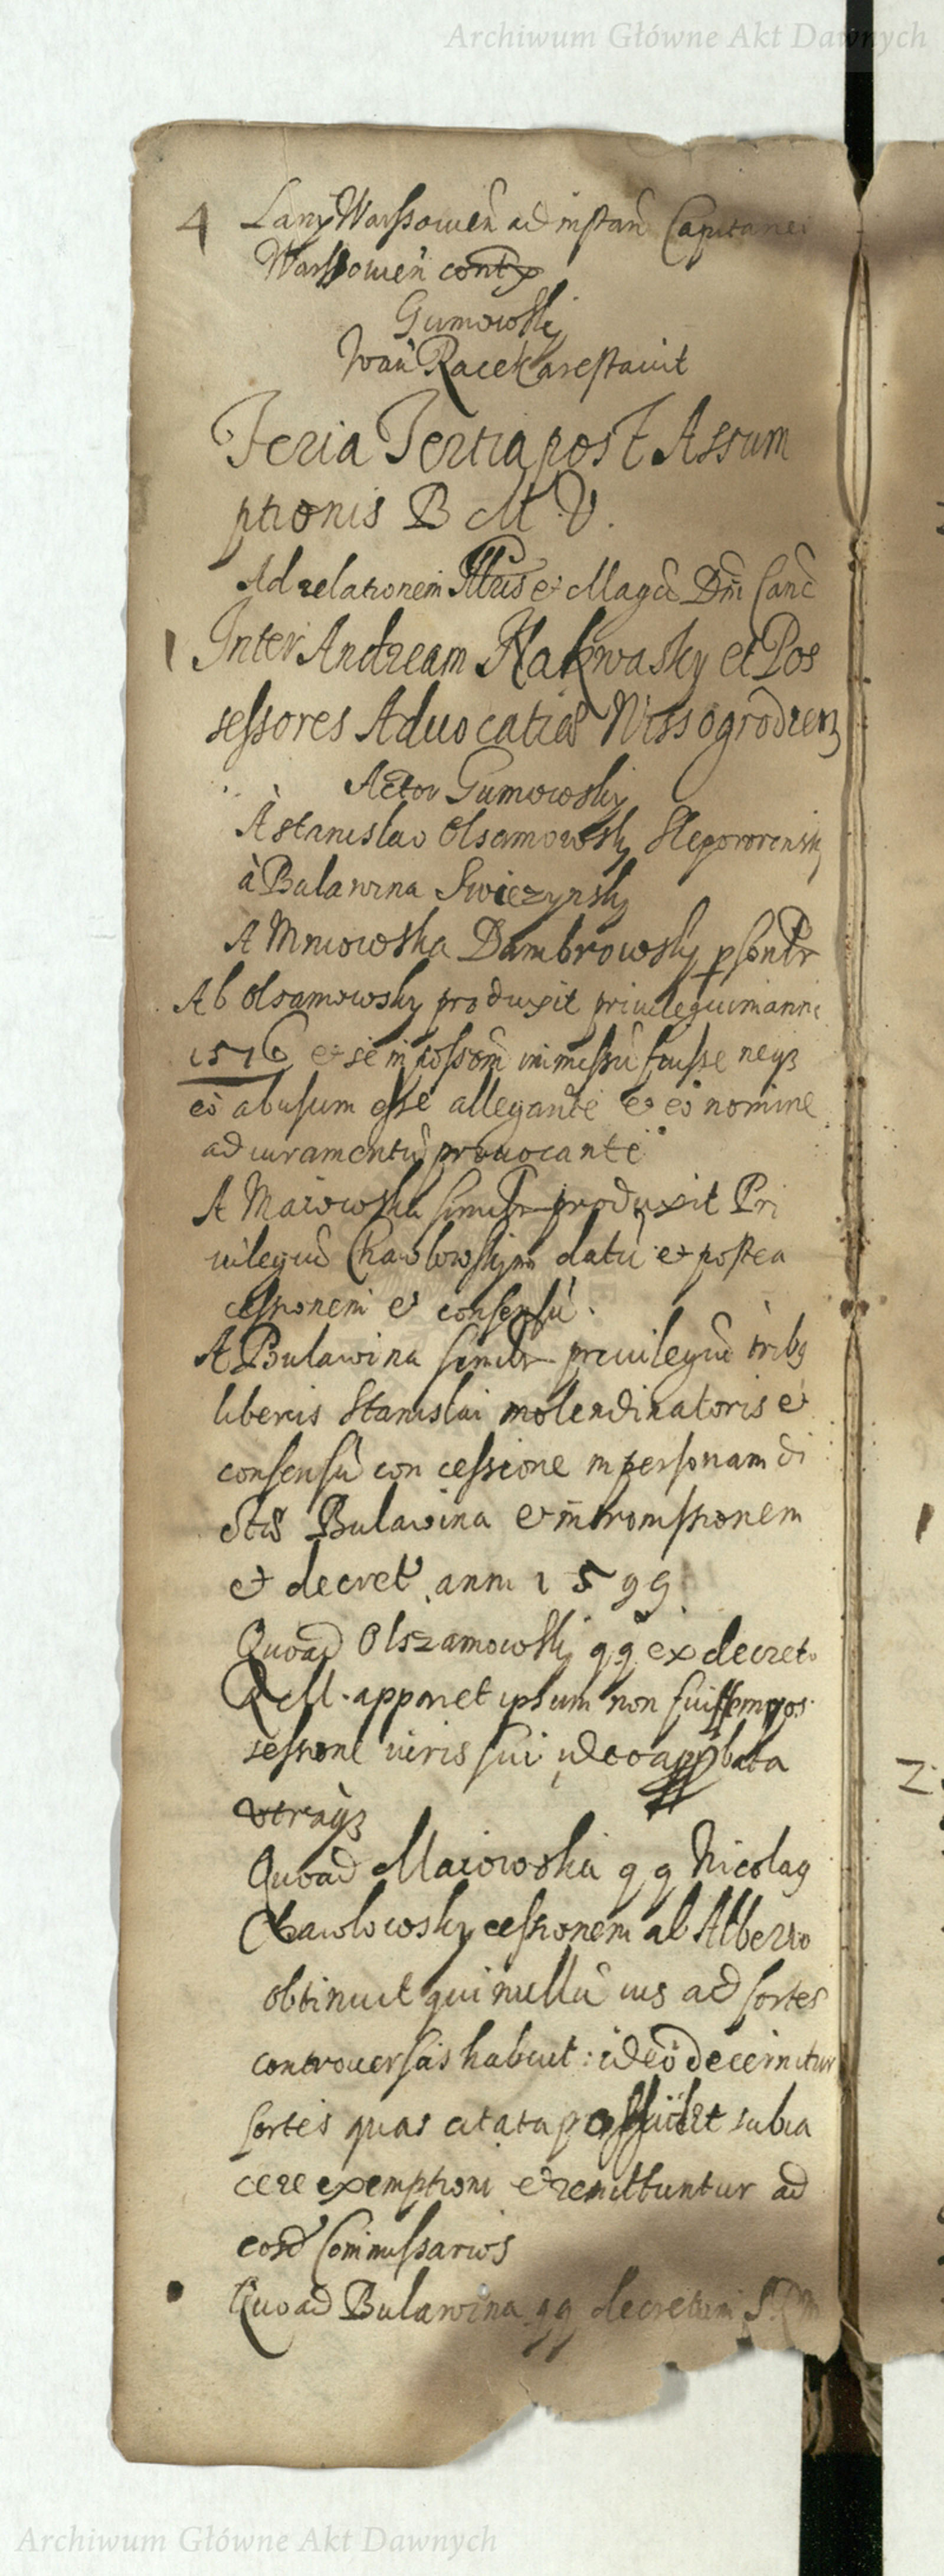 Archiwum Główne Akt Dawnych
4 Lany Warssowien ad instan Capitanei
Warssowien contr
Gumowsky
Iwan Racek arestavit
Feria Tertia post Assum
ptionis B M V.
Ad relationem Illris et Magci Dni Canc
Inter Andream Kakwasky et Pos
sessores Aduocatiae Wissogrodien
Actor Gumowsky
A Stanislao Olsamowsky
à Bulawina Swiezynsky
A Mniowska Dambrowsky
Ab Olsamowsky produxit priuilegium anni
1576 et se in immissu fuisse neq3
eo abusum esse allegante et eo nomine
ad iuramentu prouocante
A Maiowska similr produxit Pri
uilegiu Chawlowskym datu et postea
cessionem et consensu.
A Bulawina similr priuilegiu trib9
liberis Stanislai molendinatoris et
consensu con cessione in personam di
ctae Bulawina et intromissionem
et decret anni 1599.
Quoad Olszamowsky q q ex decret
apparet ipsum non fuisse in pos
sessione ideo
utraq3
Quoad Maiowska q q Nicolaus
Chawlowsky cessionem ab Alberto
obtinuit qui nullu ius ad sortes
controuersas habuit: ideo decernitur
sortes quas citata possidet subia
cere exemptioni et remittuntur ad
eosd Commissarios
Quoad Bulawina q q decretum S. R M
Archiwum Główne Akt Dawnych